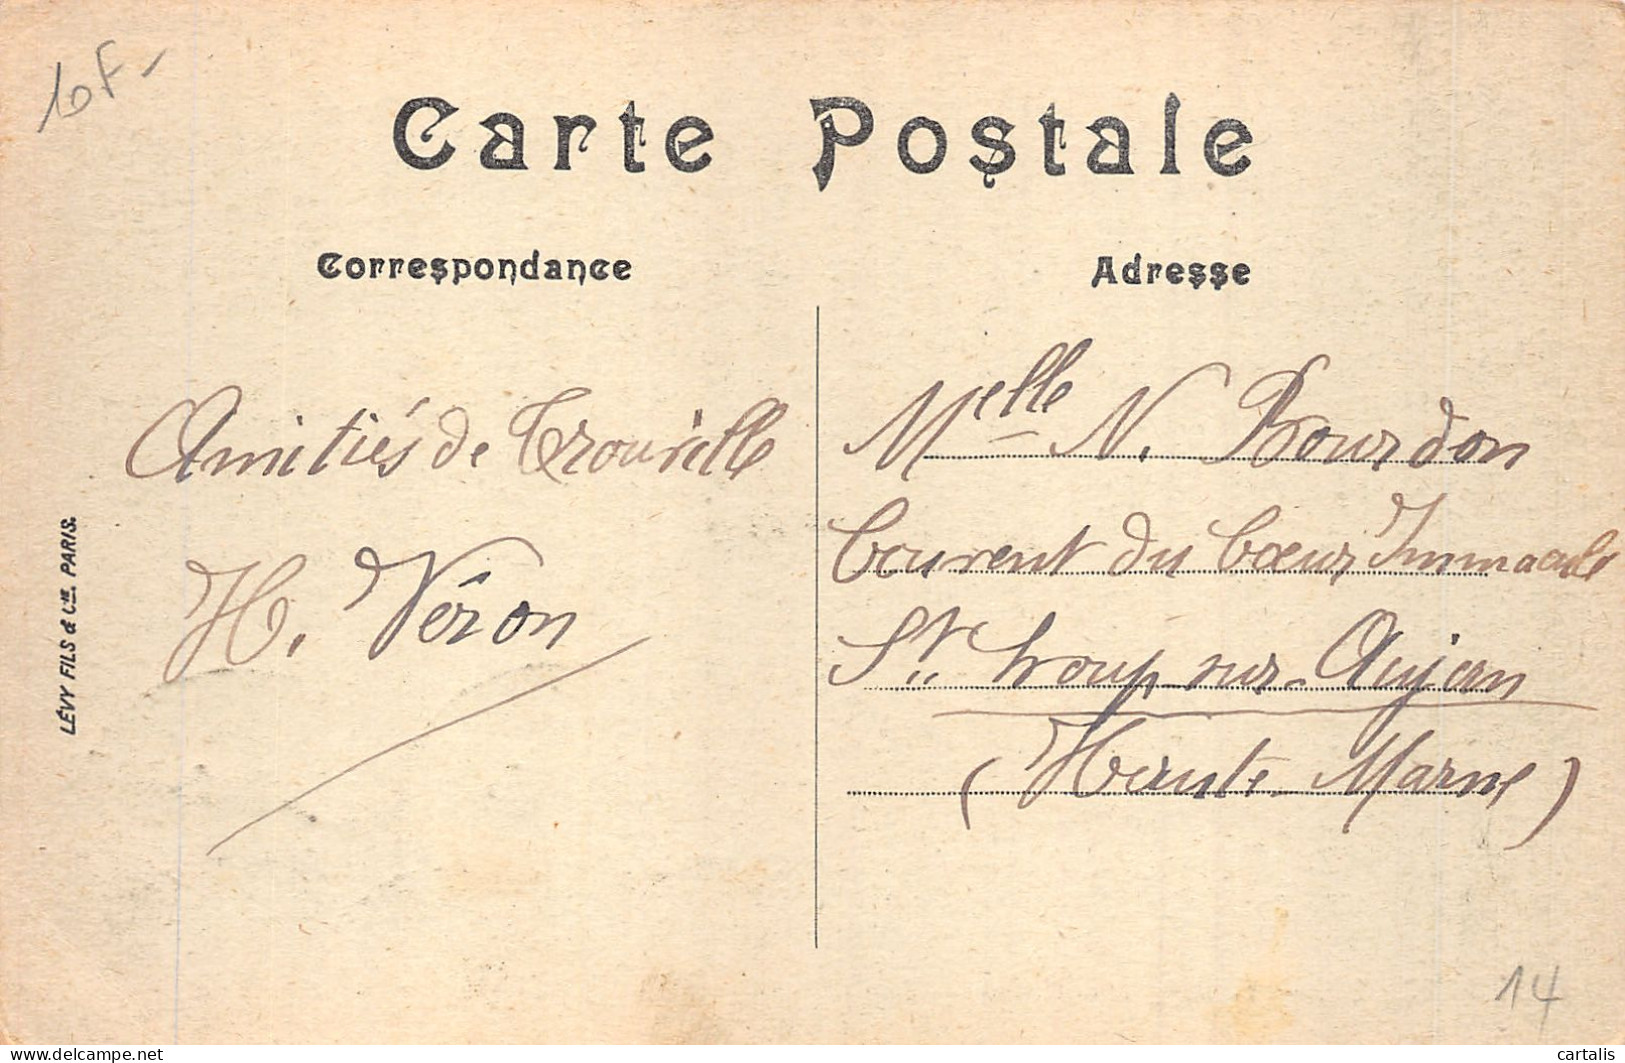 10F-
Carte Postale
Correspondance
Adresse
Amitiés de Trouville
H. Véron
LÉVY FILS & Cie. PARIS.
Melle N. Bourdon
Couvent du Cœur Immaculé
St. Loup-sur-Aujon
(Haute-Marne)
14
www.delcampe.net
cartalis